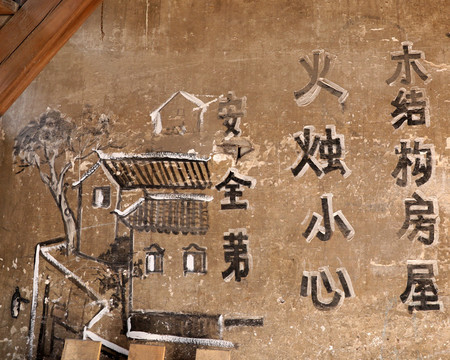 木结构房屋
火烛小心
安全苐